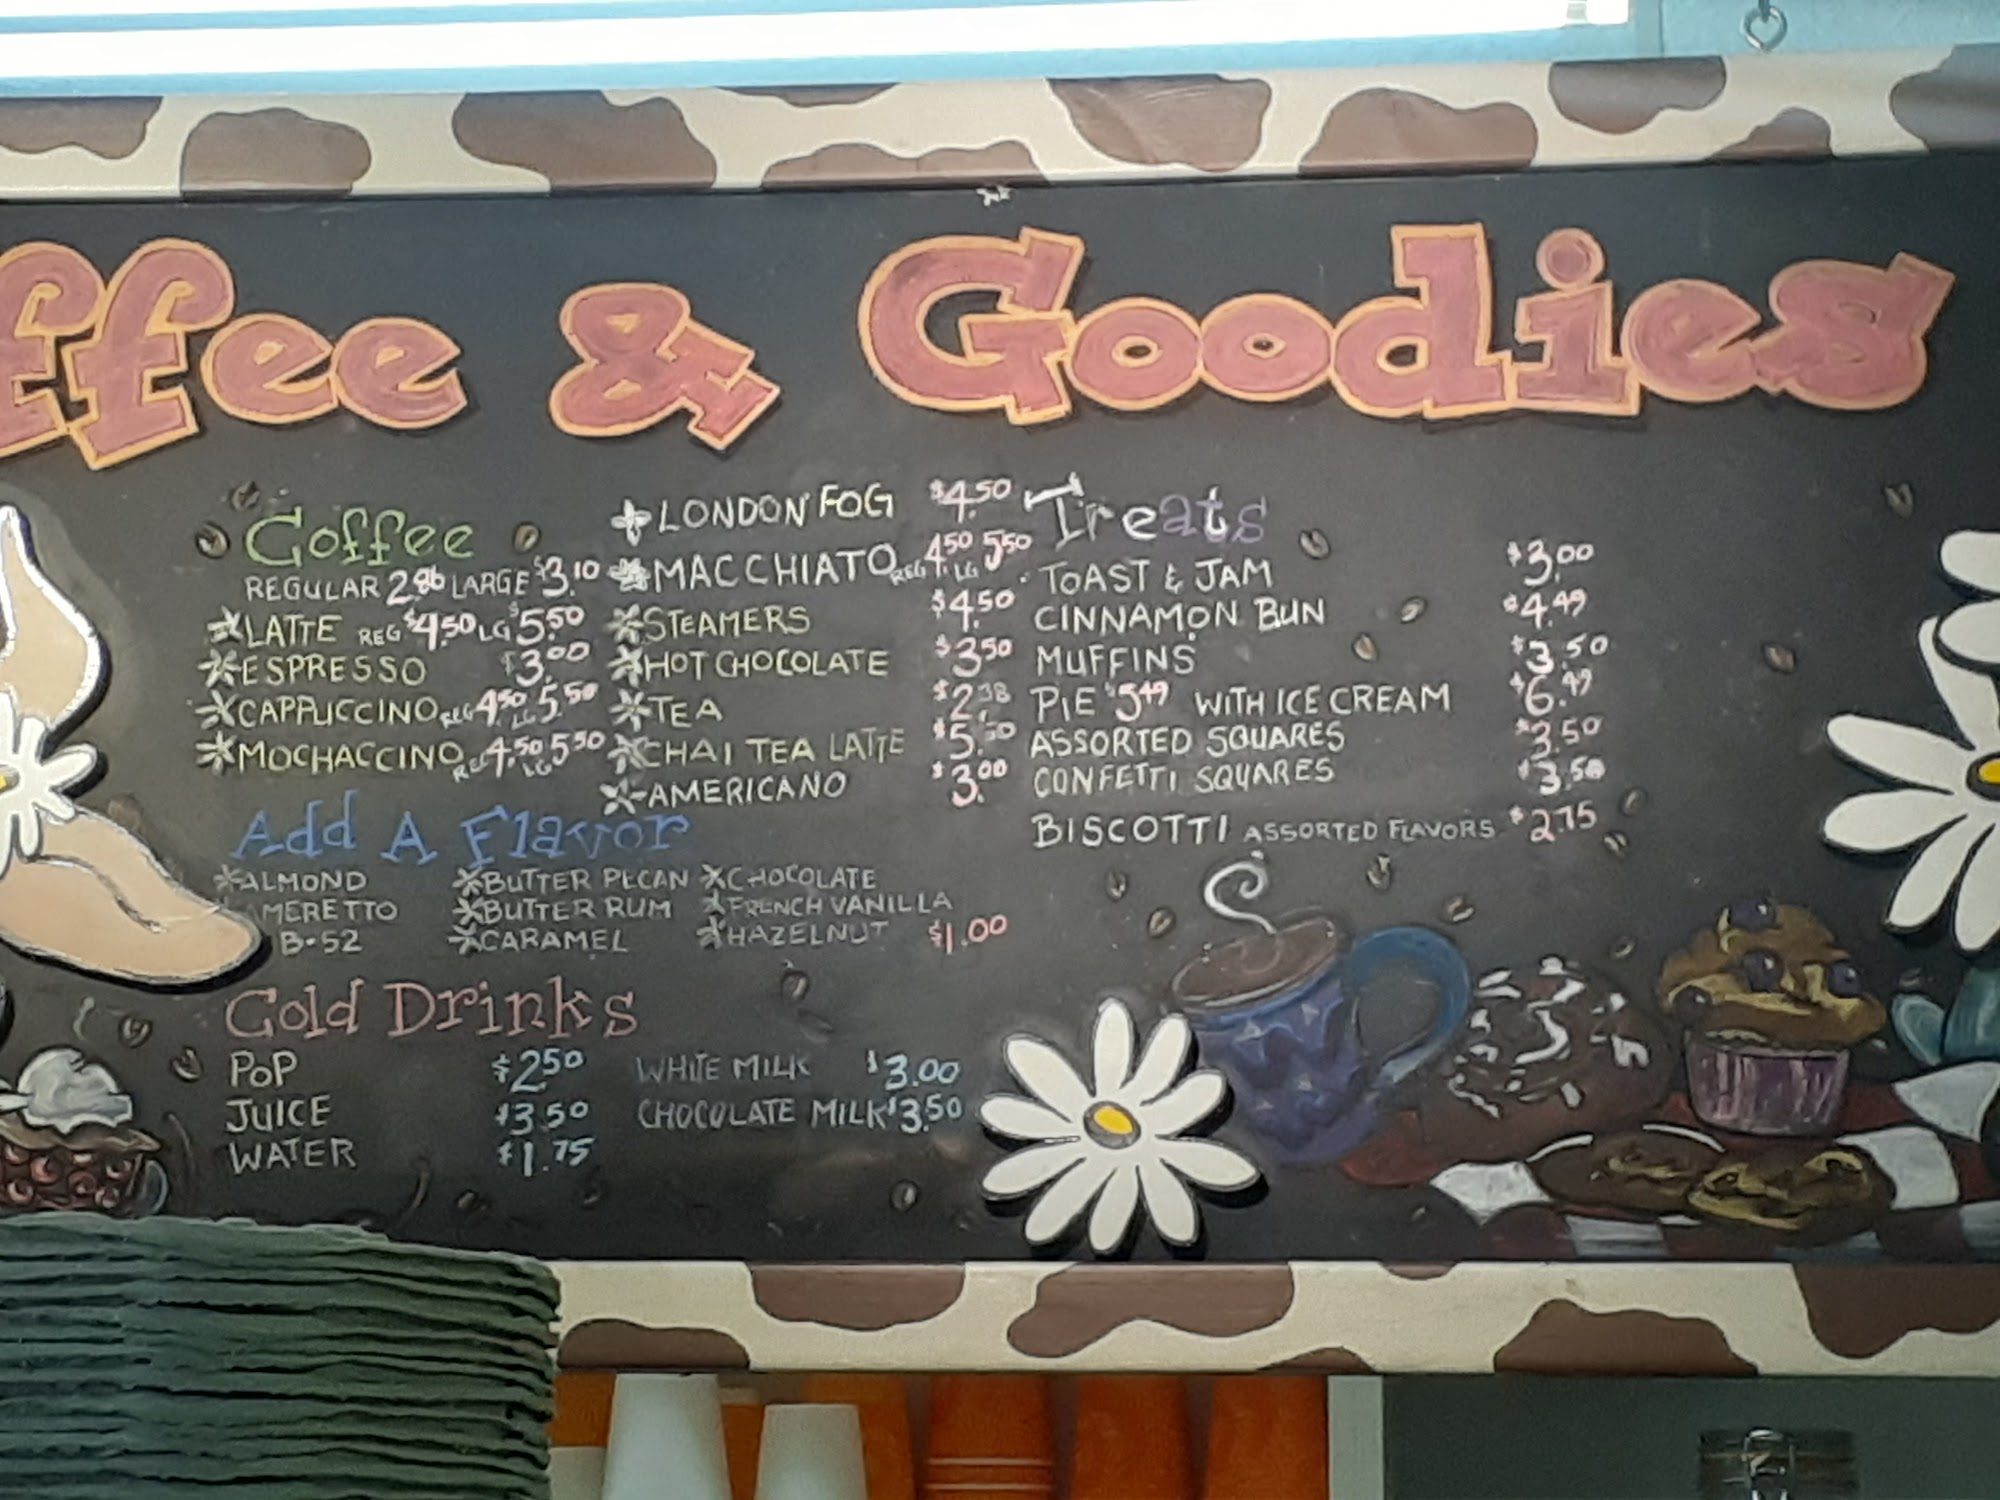 ffee & Goodies
Coffee
REGULAR 2.86 LARGE $3.10
LATTE REG $4.50 LG $5.50
ESPRESSO $3.00
CAPPUCCINO REG 4.50 LG 5.50
MOCHACCINO REG 4.50 LG 5.50
LONDON FOG $4.50
MACCHIATO REG 4.50 LG 5.50
STEAMERS $4.50
HOT CHOCOLATE $3.50
TEA
CHAI TEA LATTE $5.50
AMERICANO $3.00
Add A Flavor
ALMOND
AMERETTO
B-52
BUTTER PECAN
BUTTER RUM
CARAMEL
CHOCOLATE
FRENCH VANILLA
HAZELNUT $1.00
Cold Drinks
POP $2.50
JUICE $3.50
WATER $1.75
WHITE MILK $3.00
CHOCOLATE MILK $3.50
Treats
TOAST & JAM $3.00
CINNAMON BUN $4.49
MUFFINS $3.50
PIE $5.49 WITH ICE CREAM $6.49
ASSORTED SQUARES $3.50
CONFETTI SQUARES $3.50
BISCOTTI ASSORTED FLAVORS $2.75